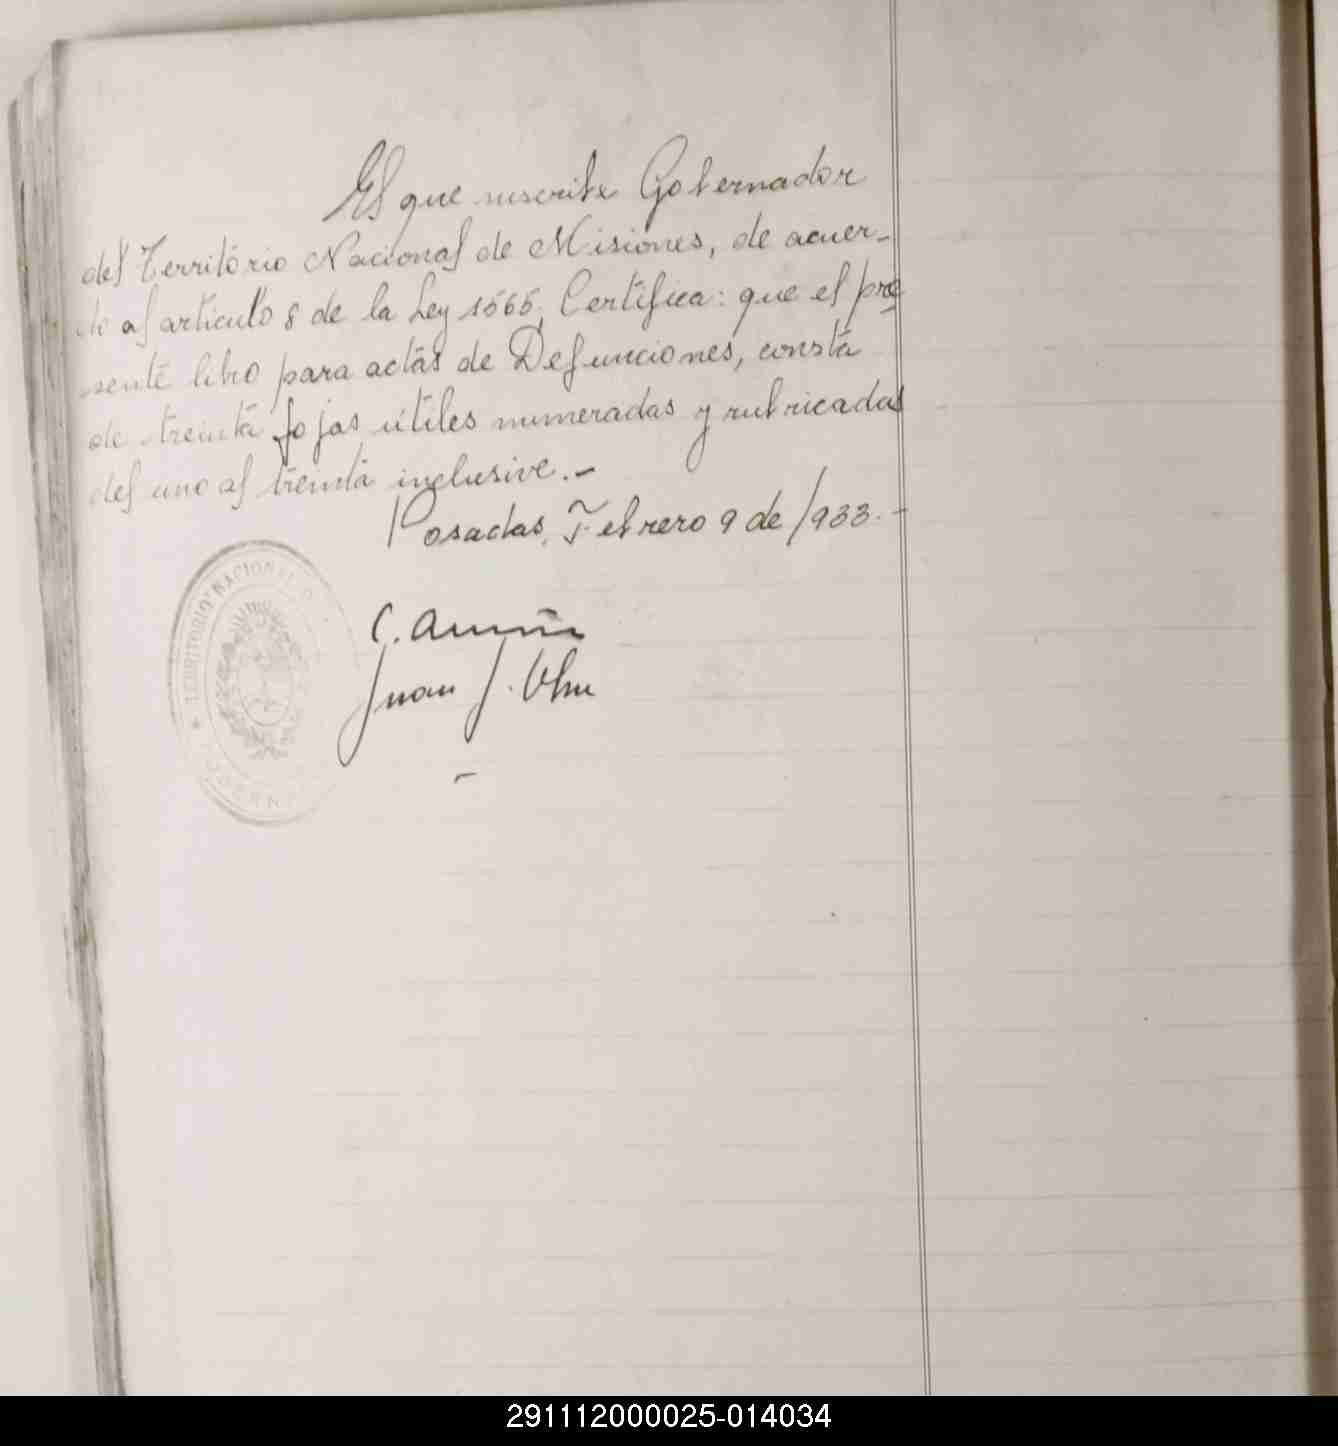 El que suscribe Gobernador
del Territorio Nacional de Misiones, de acuer-
do al articulo 8 de la Ley 1565, Certifica: que el pre
sente libro para actas de Defunciones, consta
de treinta fojas útiles numeradas y rubricadas
del uno al treinta inclusive.-
Posadas, Febrero 9 de /933.-
TERRITORIO NACIONAL
C. Acuña
Juan J.
291112000025-014034